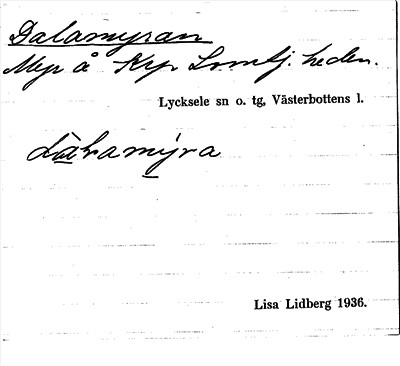 Dalamyran
Myr å Krp Lomtj. heden.
Lycksele sn o. tg, Västerbottens l.
Lisa Lidberg 1936.